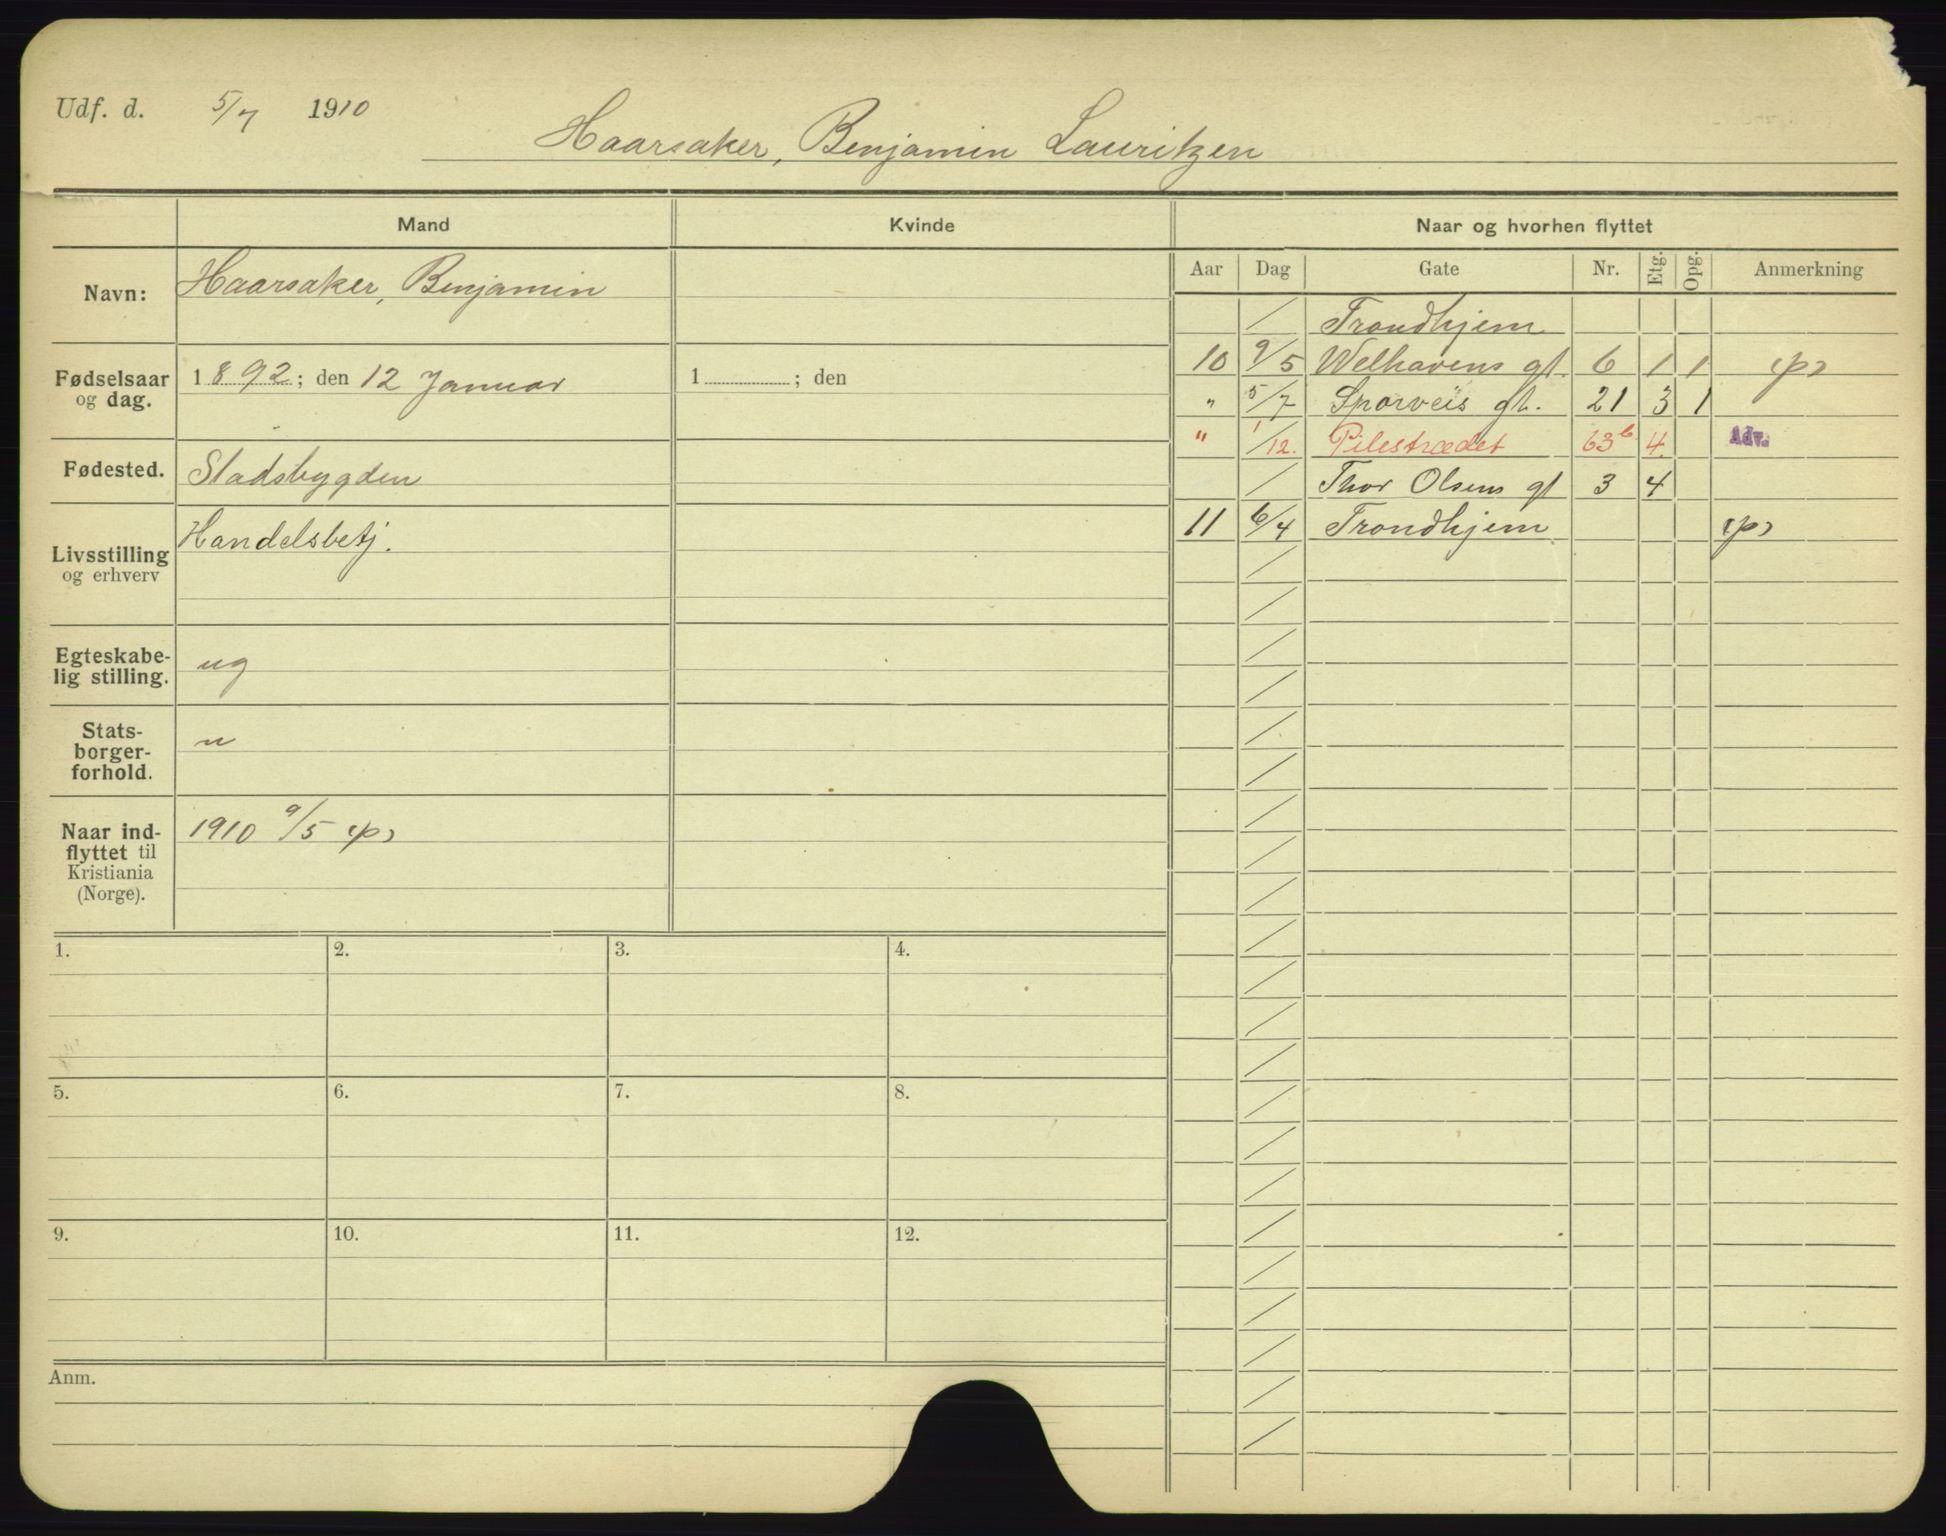 Udf. d. 5/7 1910
Haarsaker, Benjamin Lauritzen
Mand Kvinde Naar og hvorhen flyttet
Aar Dag Gate Nr. Etg. Opg. Anmerkning
Navn: Haarsaker, Benjamin
Fødselsaar og dag. 1892; den 12 Januar 1 ; den
Fødested. Stadsbygden
Livsstilling og erhverv Handelsbetj.
Egteskabe-
lig stilling. ug
Stats-
borger-
forhold. n
Naar ind-
flyttet til
Kristiania
(Norge). 1910 9/5 (p)
/ Trondhjem
10 9/5 Welhavens gt. 6 1 1 (p)
" 5/7 Sporveis gt. 21 3 1
" 1/12. Pilestrædet 63b 4. Adv.
/ Thor Olsens gt 3 4
11 6/4 Trondhjem (p)
1. 2. 3. 4.
5. 6. 7. 8.
9. 10. 11. 12.
Anm.